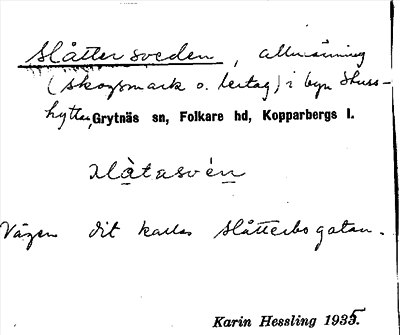 Slåttersveden, allmänning
(skogsmark o. lertag) i byn Shuss-
hyttan, Grytnäs sn, Folkare hd, Kopparbergs l.
slàtasvén
Vägen dit kallas Slåtterbogatan.
Karin Hessling 1935.